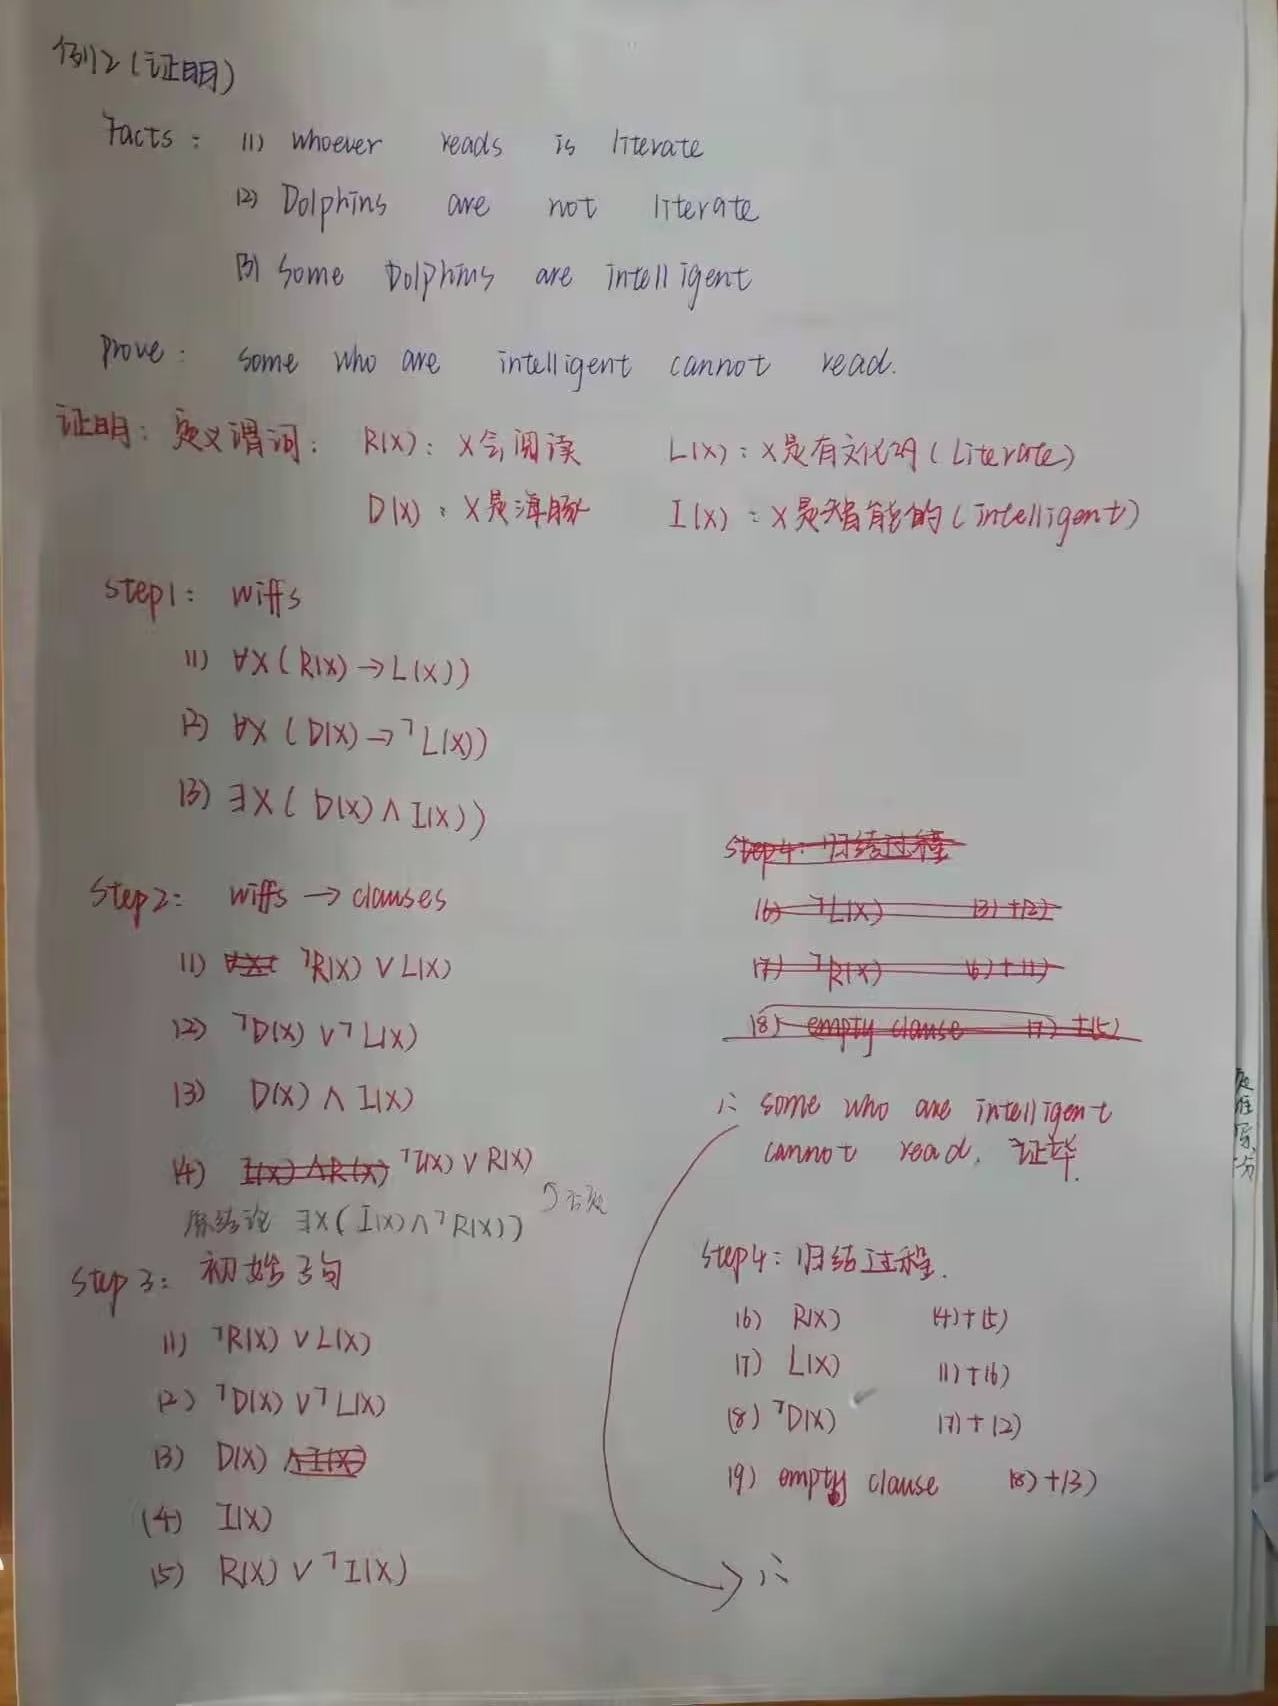 例2(证明)
Facts: (1) whoever reads is literate
(2) Dolphins are not literate
(3) Some Dolphins are intelligent
prove: some who are intelligent cannot read.
证明: 定义谓词: R(X): X会阅读 L(X): X是有文化的(Literate)
D(X): X是海豚 I(X): X是智能的(intelligent)
step1: wiffs
(1) ∀X(R(X)→L(X))
(2) ∀X(D(X)→¬L(X))
(3) ∃X(D(X)∧I(X))
Step2: wiffs → clauses
(1) ¬R(X)∨L(X)
(2) ¬D(X)∨¬L(X)
(3) D(X)∧I(X)
(4) I(X)∧R(X) ¬I(X)∨R(X)
原结论 ∃X(I(X)∧¬R(X)) 否定
Step 3: 初始子句
(1) ¬R(X)∨L(X)
(2) ¬D(X)∨¬L(X)
(3) D(X) ∧I(X)
(4) I(X)
(5) R(X)∨¬I(X)
step4: 归结过程
(6) ¬L(X) (3)+(2)
(7) ¬R(X) (6)+(1)
(8) empty clause (7)+(5)
∴ some who are intelligent
cannot read. 证毕.
Step4: 归结过程.
(6) R(X) (4)+(5)
(7) L(X) (1)+(6)
(8) ¬D(X) (7)+(2)
(9) empty clause (8)+(3)
∴